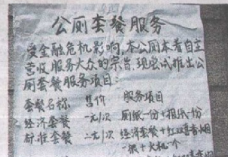 公厕套餐服务
受金融危机影响,本公厕本着自主
营收服务大众的宗旨,现尝试推出公
厕套餐服务项目:
套餐名称 售价 服务项目
经济套餐 一元/次 厕纸一份+报纸一份
标准套餐 二元/次 经济套餐+红双喜香烟
一根+火柴一个